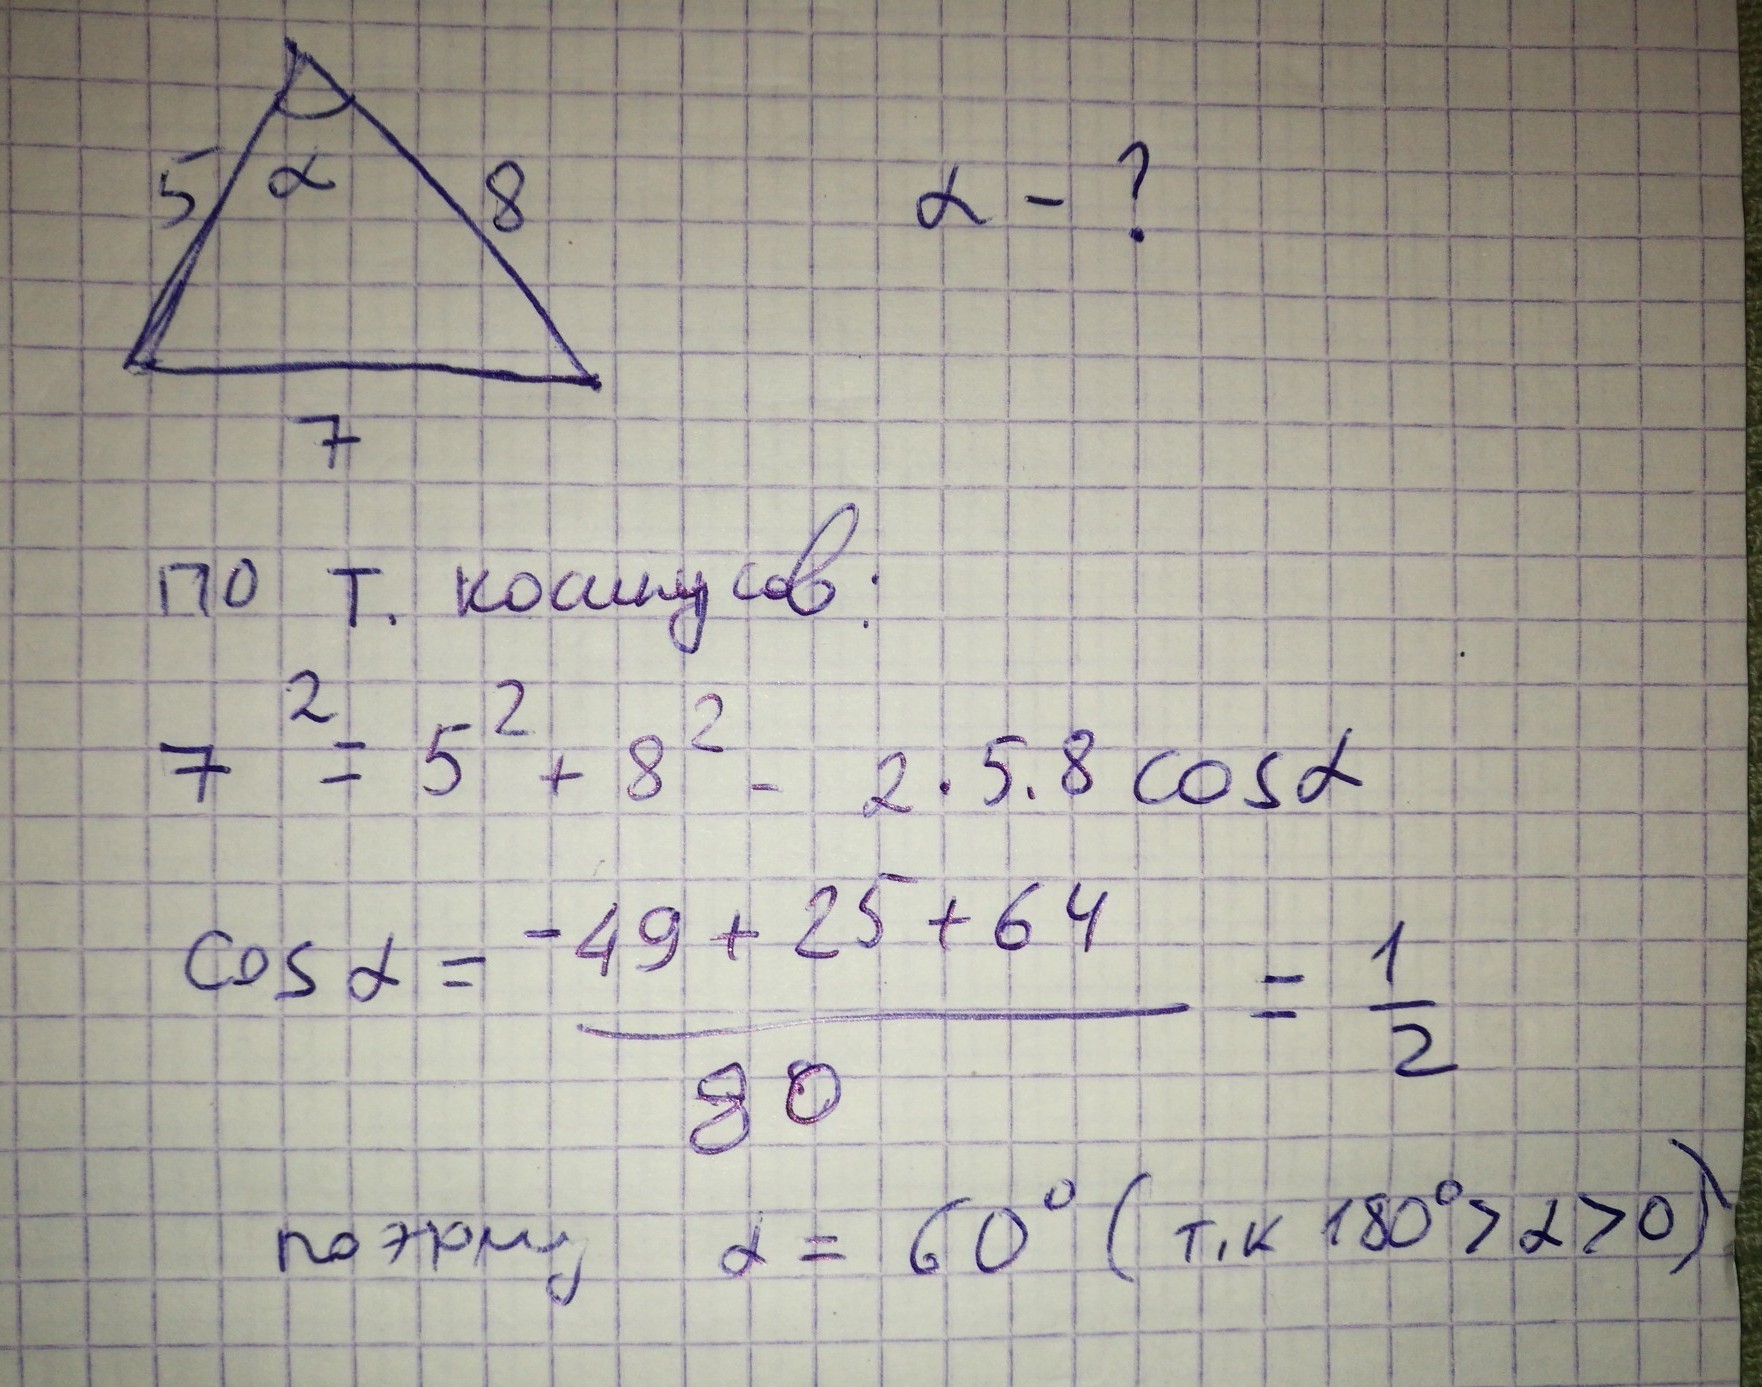 5 α 8
α - ?
7
по т. косинусов:
7² = 5² + 8² - 2·5·8 cosα
cos α = (-49 + 25 + 64)/80 = 1/2
поэтому α = 60° (т.к 180° > α > 0)